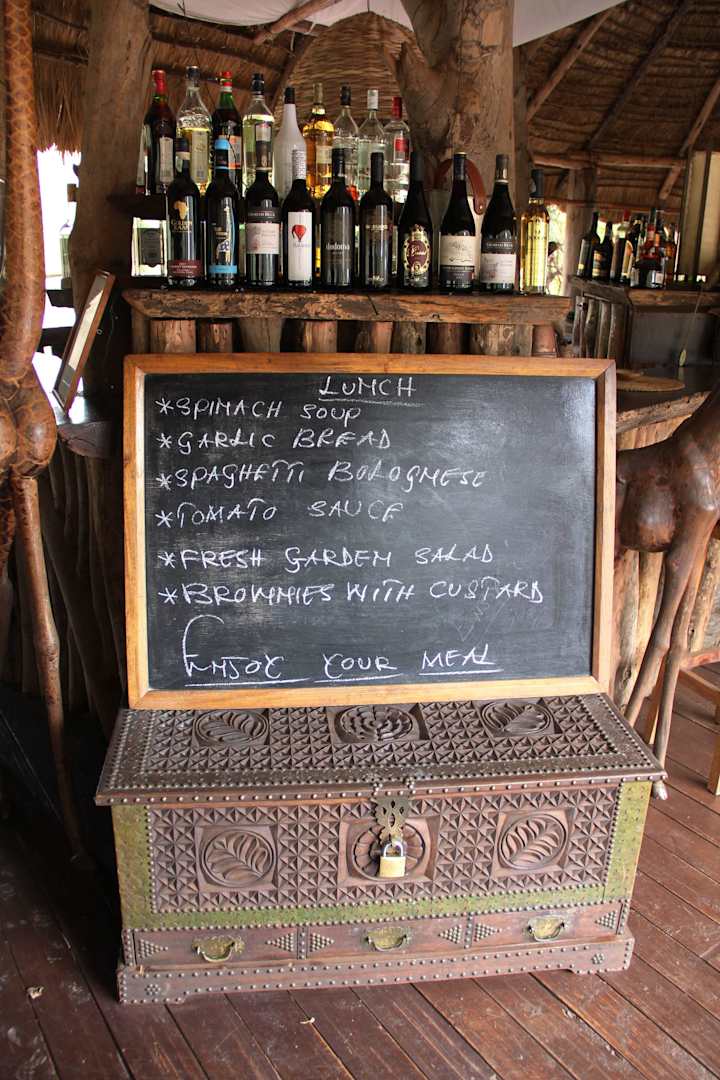 LUNCH
*SPINACH SOUP
*GARLIC BREAD
*SPAGHETTI BOLOGMESE
*TOMATO SAUCE
*FRESH GARDEM SALAD
*BROWNIES WITH CUSTARD
ENJOY YOUR MEAL